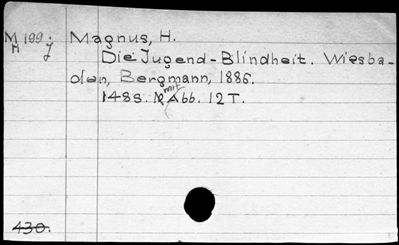 M 199: Magnus, H.
H J Die Jugend-Blindheit. Wiesba-
den, Bergmann, 1886.
148S. mit Abb. 12T.
430.